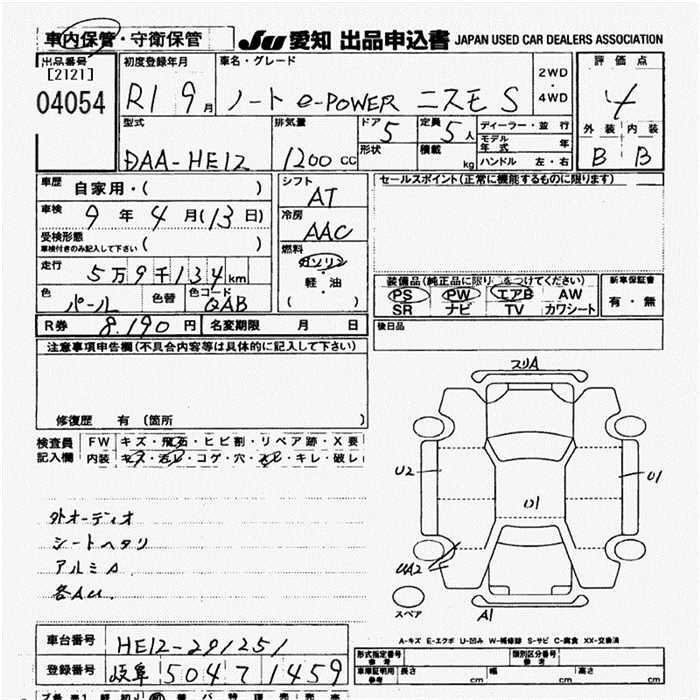 車内保管・守衛保管
JU 愛知 出品申込書 JAPAN USED CAR DEALERS ASSOCIATION
出品番号
[2121]
04054
初度登録年月
R1 9月
車名・グレード
ノート e-POWER ニスモ S
2WD・4WD
評価点
4
外装 内装
B B
型式
DAA-HE12
排気量
1200 cc
ドア 5
形状
定員 5人
積載 kg
ディーラー・並行
モデル年式 年
ハンドル 左・右
車歴 自家用・( )
車検 9年4月(13日)
受検形態
車検付きのみ記入して下さい ( )
走行 5万9千134km
色 パール 色替 色コード QAB
シフト AT
冷房 AAC
燃料
ガソリン・軽・油
( )
セールスポイント(正常に機能するものに限ります)
装備品(純正品に限り○をつけてください)
PS PW エアB AW
SR ナビ TV カワシート
新車保証書
有・無
R券 8,190円 名変期限 月 日
後日品
注意事項申告欄(不具合内容等は具体的に記入して下さい)
修復歴 有 (箇所 )
検査員記入欄
FW キズ・飛石・ヒビ割・リペア跡・X要
内装 キズ・汚レ・コゲ・穴・スレ・キレ・破レ
外オーディオ
シートヘタリ
アルミA
各AU
スリA
U2
U1
U1
UA2
A1
スペア
A-キズ E-エクボ U-凹み W-補修跡 S-サビ C-腐食 XX-交換済
車台番号 HE12-291251
登録番号 岐阜 504 マ 1459
形式指定番号
参考
類別区分番号
参考
車庫証明用
参考
長さ cm 幅 cm 高さ cm